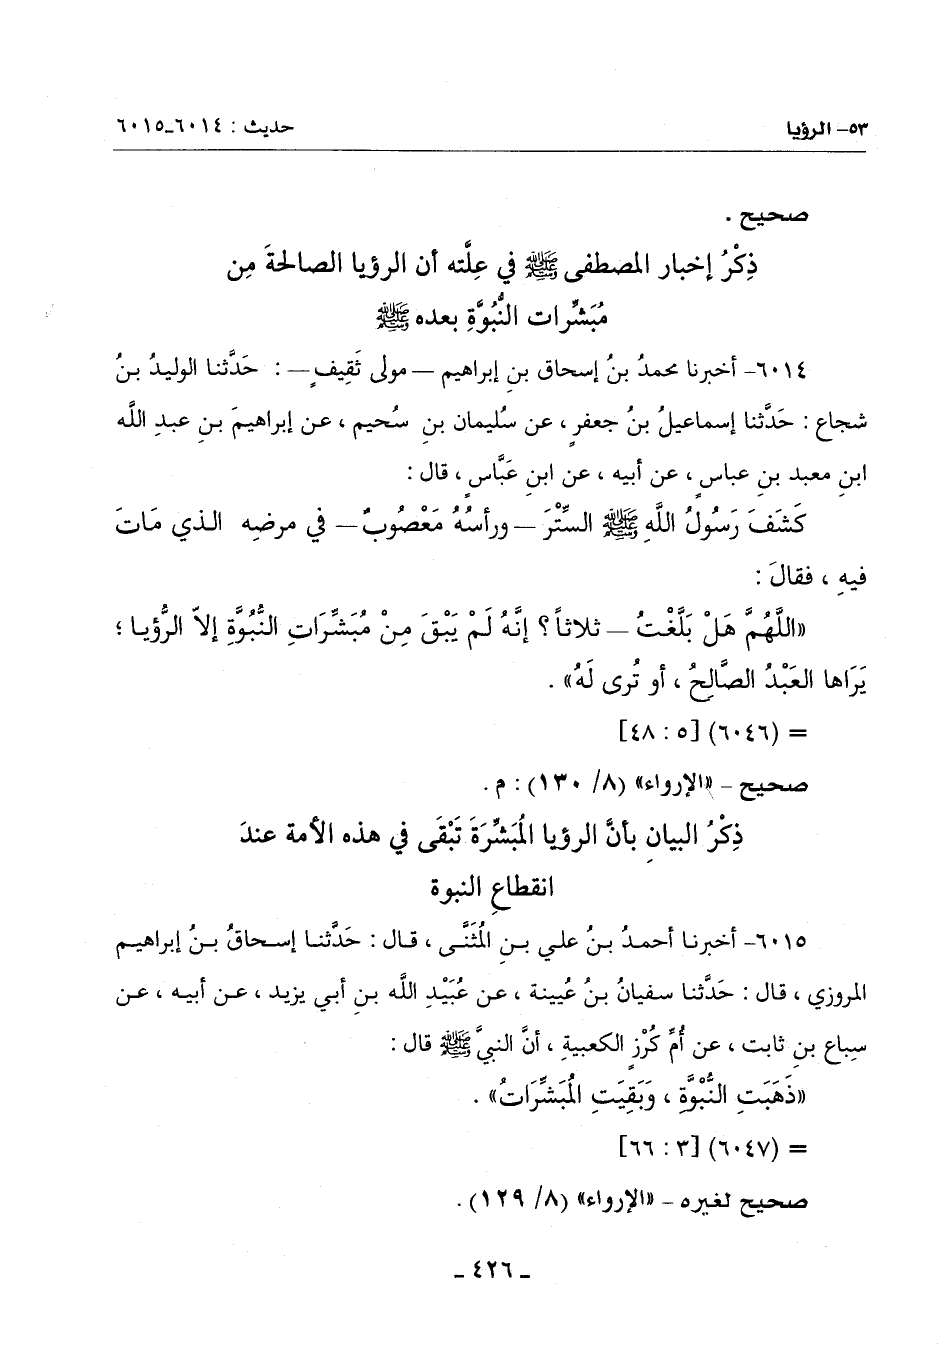 ٥٣- الرؤيا حديث : ٦٠١٤-٦٠١٥
صحيح .
ذِكْرُ إخبار المصطفى ﷺ في عِلَّته أن الرؤيا الصالحةَ مِن
مُبَشِّرات النُّبُوَّةِ بعده ﷺ
٦٠١٤- أخبرنا محمدُ بنُ إسحاق بنِ إبراهيم — مولى ثَقِيفٍ — : حَدَّثنا الوليدُ بنُ
شجاع : حَدَّثنا إسماعيلُ بنُ جعفرٍ ، عن سُليمان بنِ سُحيم ، عن إبراهيمَ بنِ عبدِ اللَّه
ابنِ معبد بنِ عباسٍ ، عن أبيه ، عن ابنِ عَبَّاسٍ ، قال :
كَشَفَ رَسُولُ اللَّهِ ﷺ السِّتْرَ — ورأسُهُ مَعْصُوبٌ — في مرضِه الذي مَاتَ
فيهِ ، فقالَ :
«اللَّهُمَّ هَلْ بَلَّغْتُ — ثلاثاً ؟ إنَّهُ لَمْ يَبْقَ مِنْ مُبَشِّرَاتِ النُّبُوَّةِ إلاّ الرُّؤيا ؛
يَرَاها العَبْدُ الصَّالِحُ ، أو تُرى لَهُ» .
= (٦٠٤٦) [٥ : ٤٨]
صحيح - «الإرواء» (٨/ ١٣٠) : م .
ذِكْرُ البيانِ بأنَّ الرؤيا المُبَشِّرَةَ تَبْقَى في هذه الأمة عندَ
انقطاعِ النبوة
٦٠١٥- أخبرنا أحمدُ بنُ علي بنِ المُثَنَّى ، قال : حَدَّثنا إسحاقُ بنُ إبراهيم
المروزي ، قال : حَدَّثنا سفيانُ بنُ عُيينة ، عن عُبَيْدِ اللَّه بنِ أبي يزيد ، عن أبيه ، عن
سِباع بنِ ثابت ، عن أُمِّ كُرْزٍ الكعبيةِ ، أنَّ النبيَّ ﷺ قال :
«ذَهَبَتِ النُّبْوَّةِ ، وَبَقِيَتِ المُبَشِّرَاتُ» .
= (٦٠٤٧) [٣ : ٦٦]
صحيح لغيره - «الإرواء» (٨/ ١٢٩) .
- ٤٢٦ -